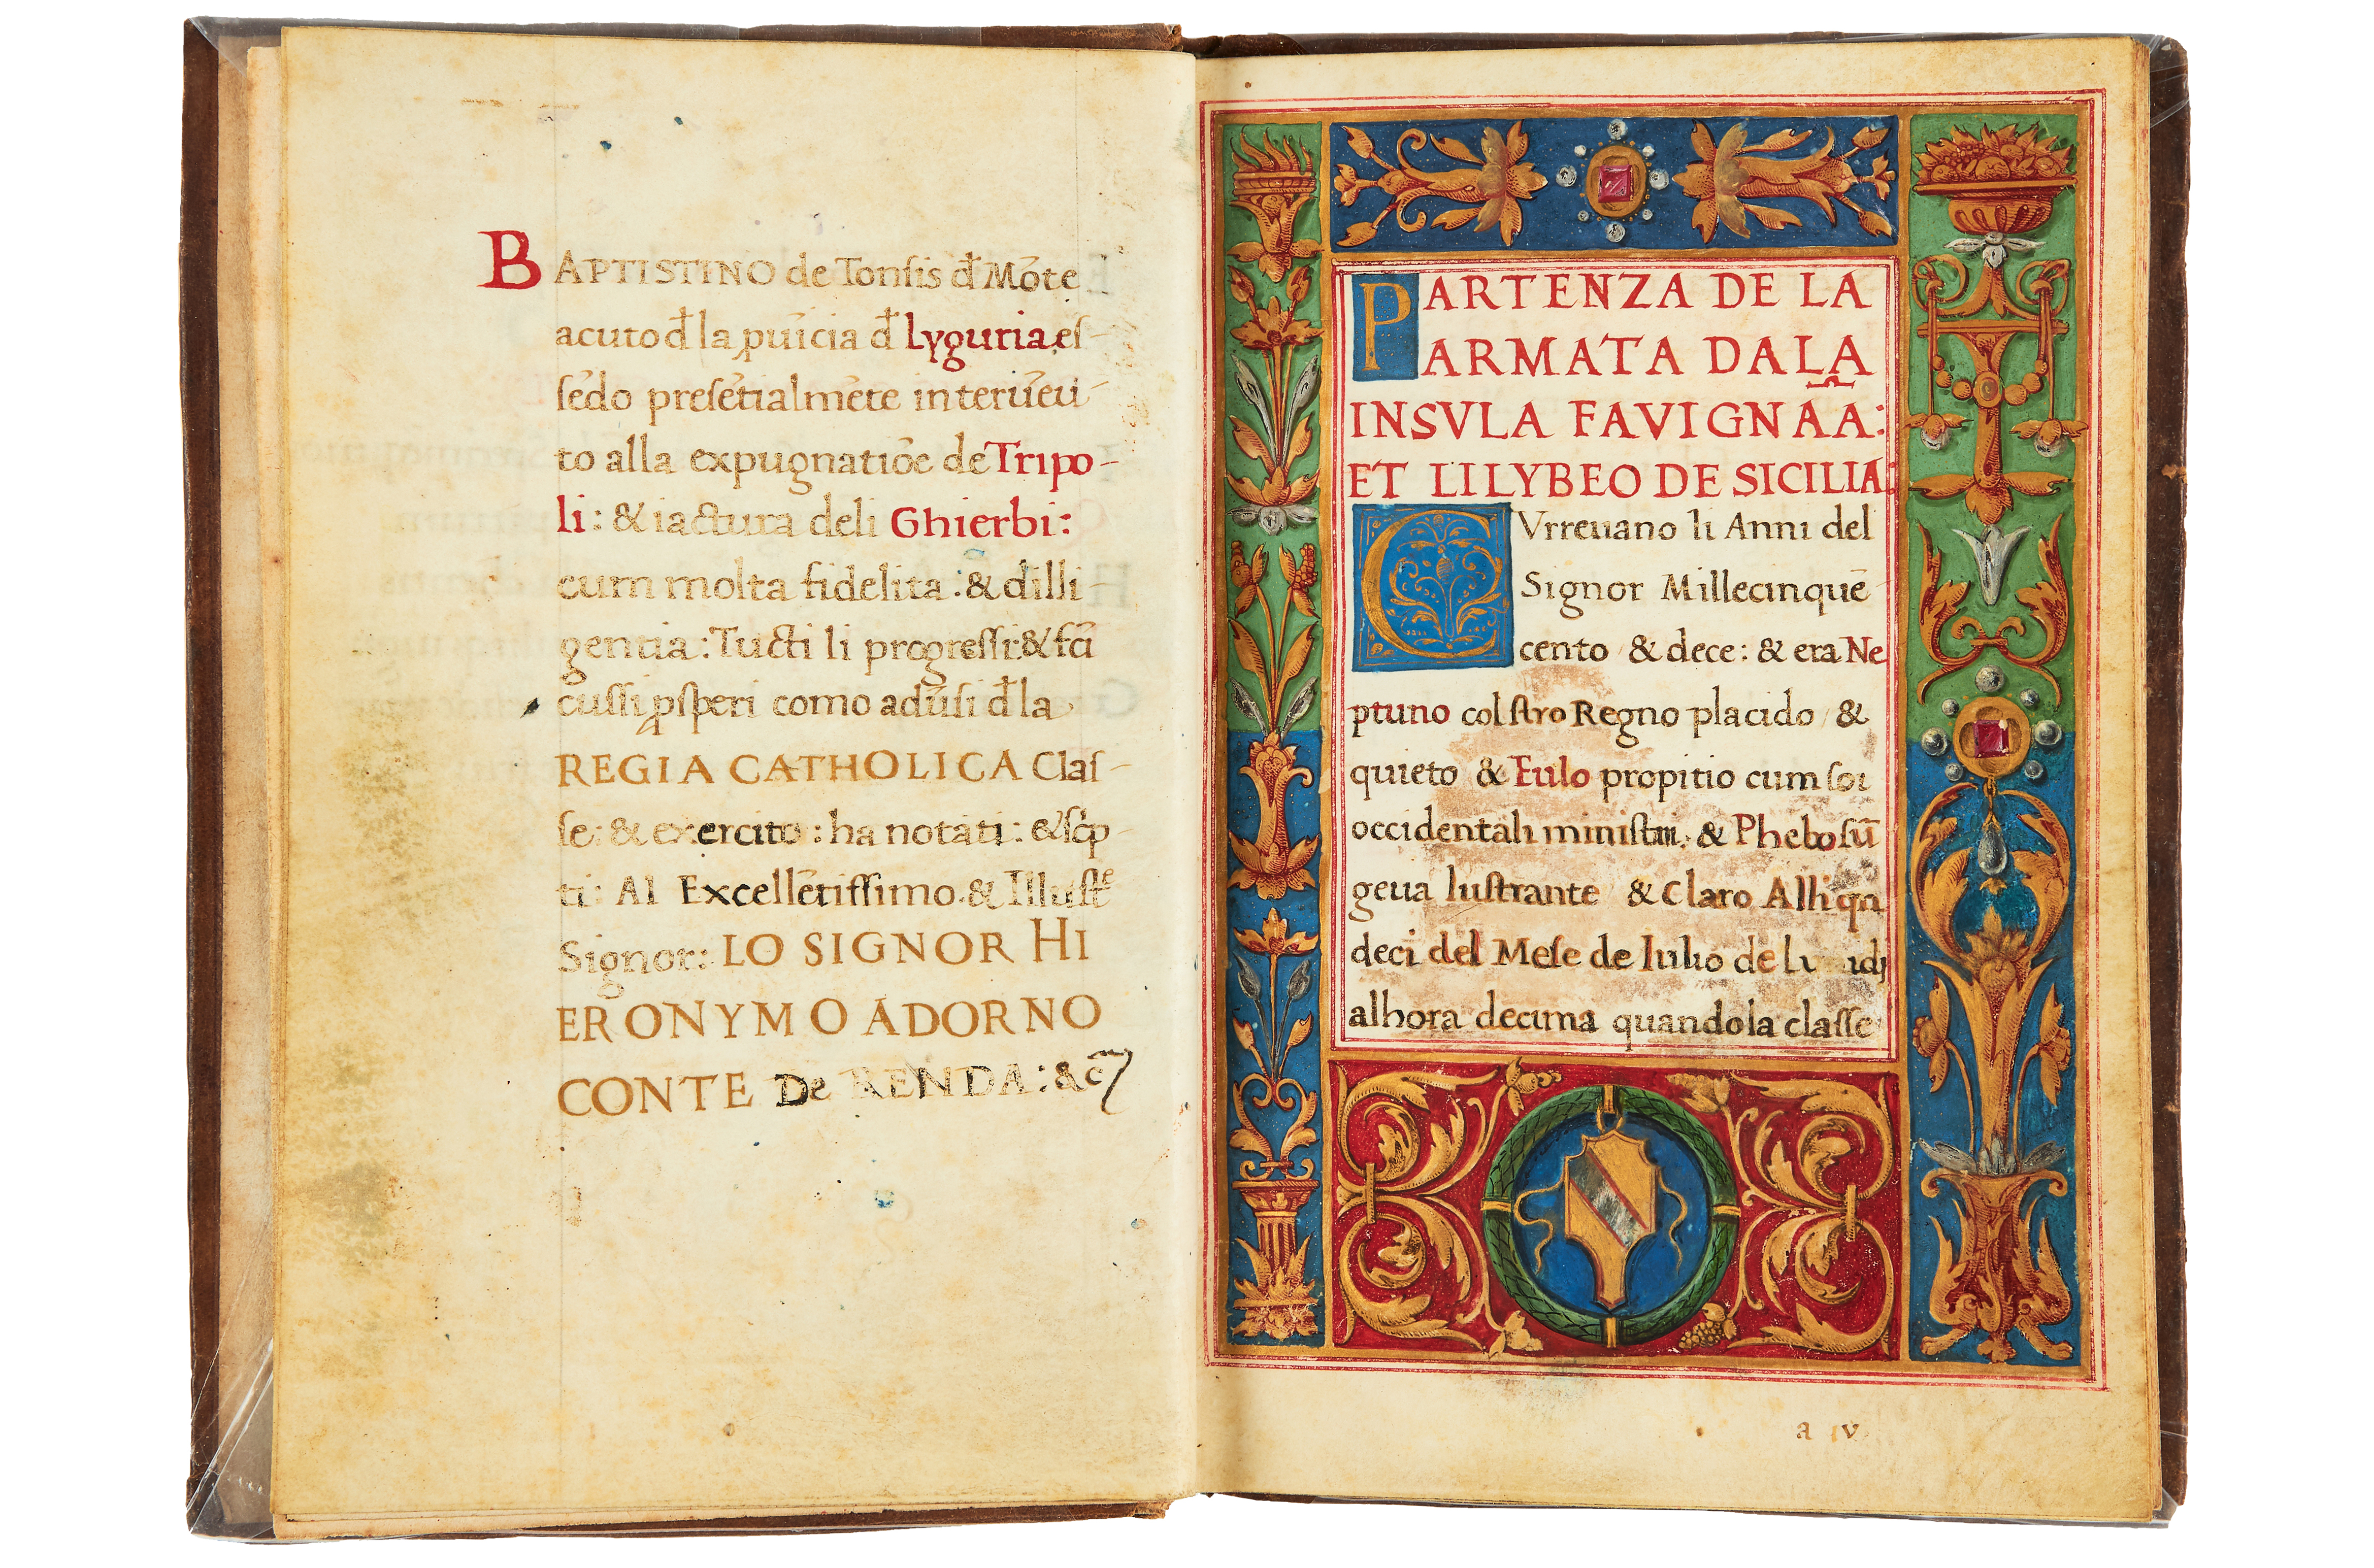 BAPTISTINO de Tonsis đ Mōte
acuto đ la ꝓuīcia đ Lyguria es-
sēdo presētialmēte interuēu-
to alla expugnatiōe de Tripo-
li: & iactura deli Ghierbi:
cum molta fidelita: & dilli-
gentia: Tucti li progressi: & fc̄i
cussi ꝓsperi como aduersi đ la
REGIA CATHOLICA Clas-
se: & exercito: ha notati: & sc̄p-
ti: Al Excellētissimo & Illustᵉ
Signor: LO SIGNOR HI
ERONYMO ADORNO
CONTE De RENDA: &c̄
PARTENZA DE LA
ARMATA DA LA
INSVLA FAVIGNAÑA:
ET LILYBEO DE SICILIA:
CVrreuano li Anni del
Signor Millecinquē-
cento & dece: & era Ne
ptuno col stro Regno placido &
quieto & Eulo propitio cum soi
occidentali ministri: & Phebo sū
geua lustrante & Claro Alli qn
deci del Mese de Iulio de
alhora decima quando la classe
a v